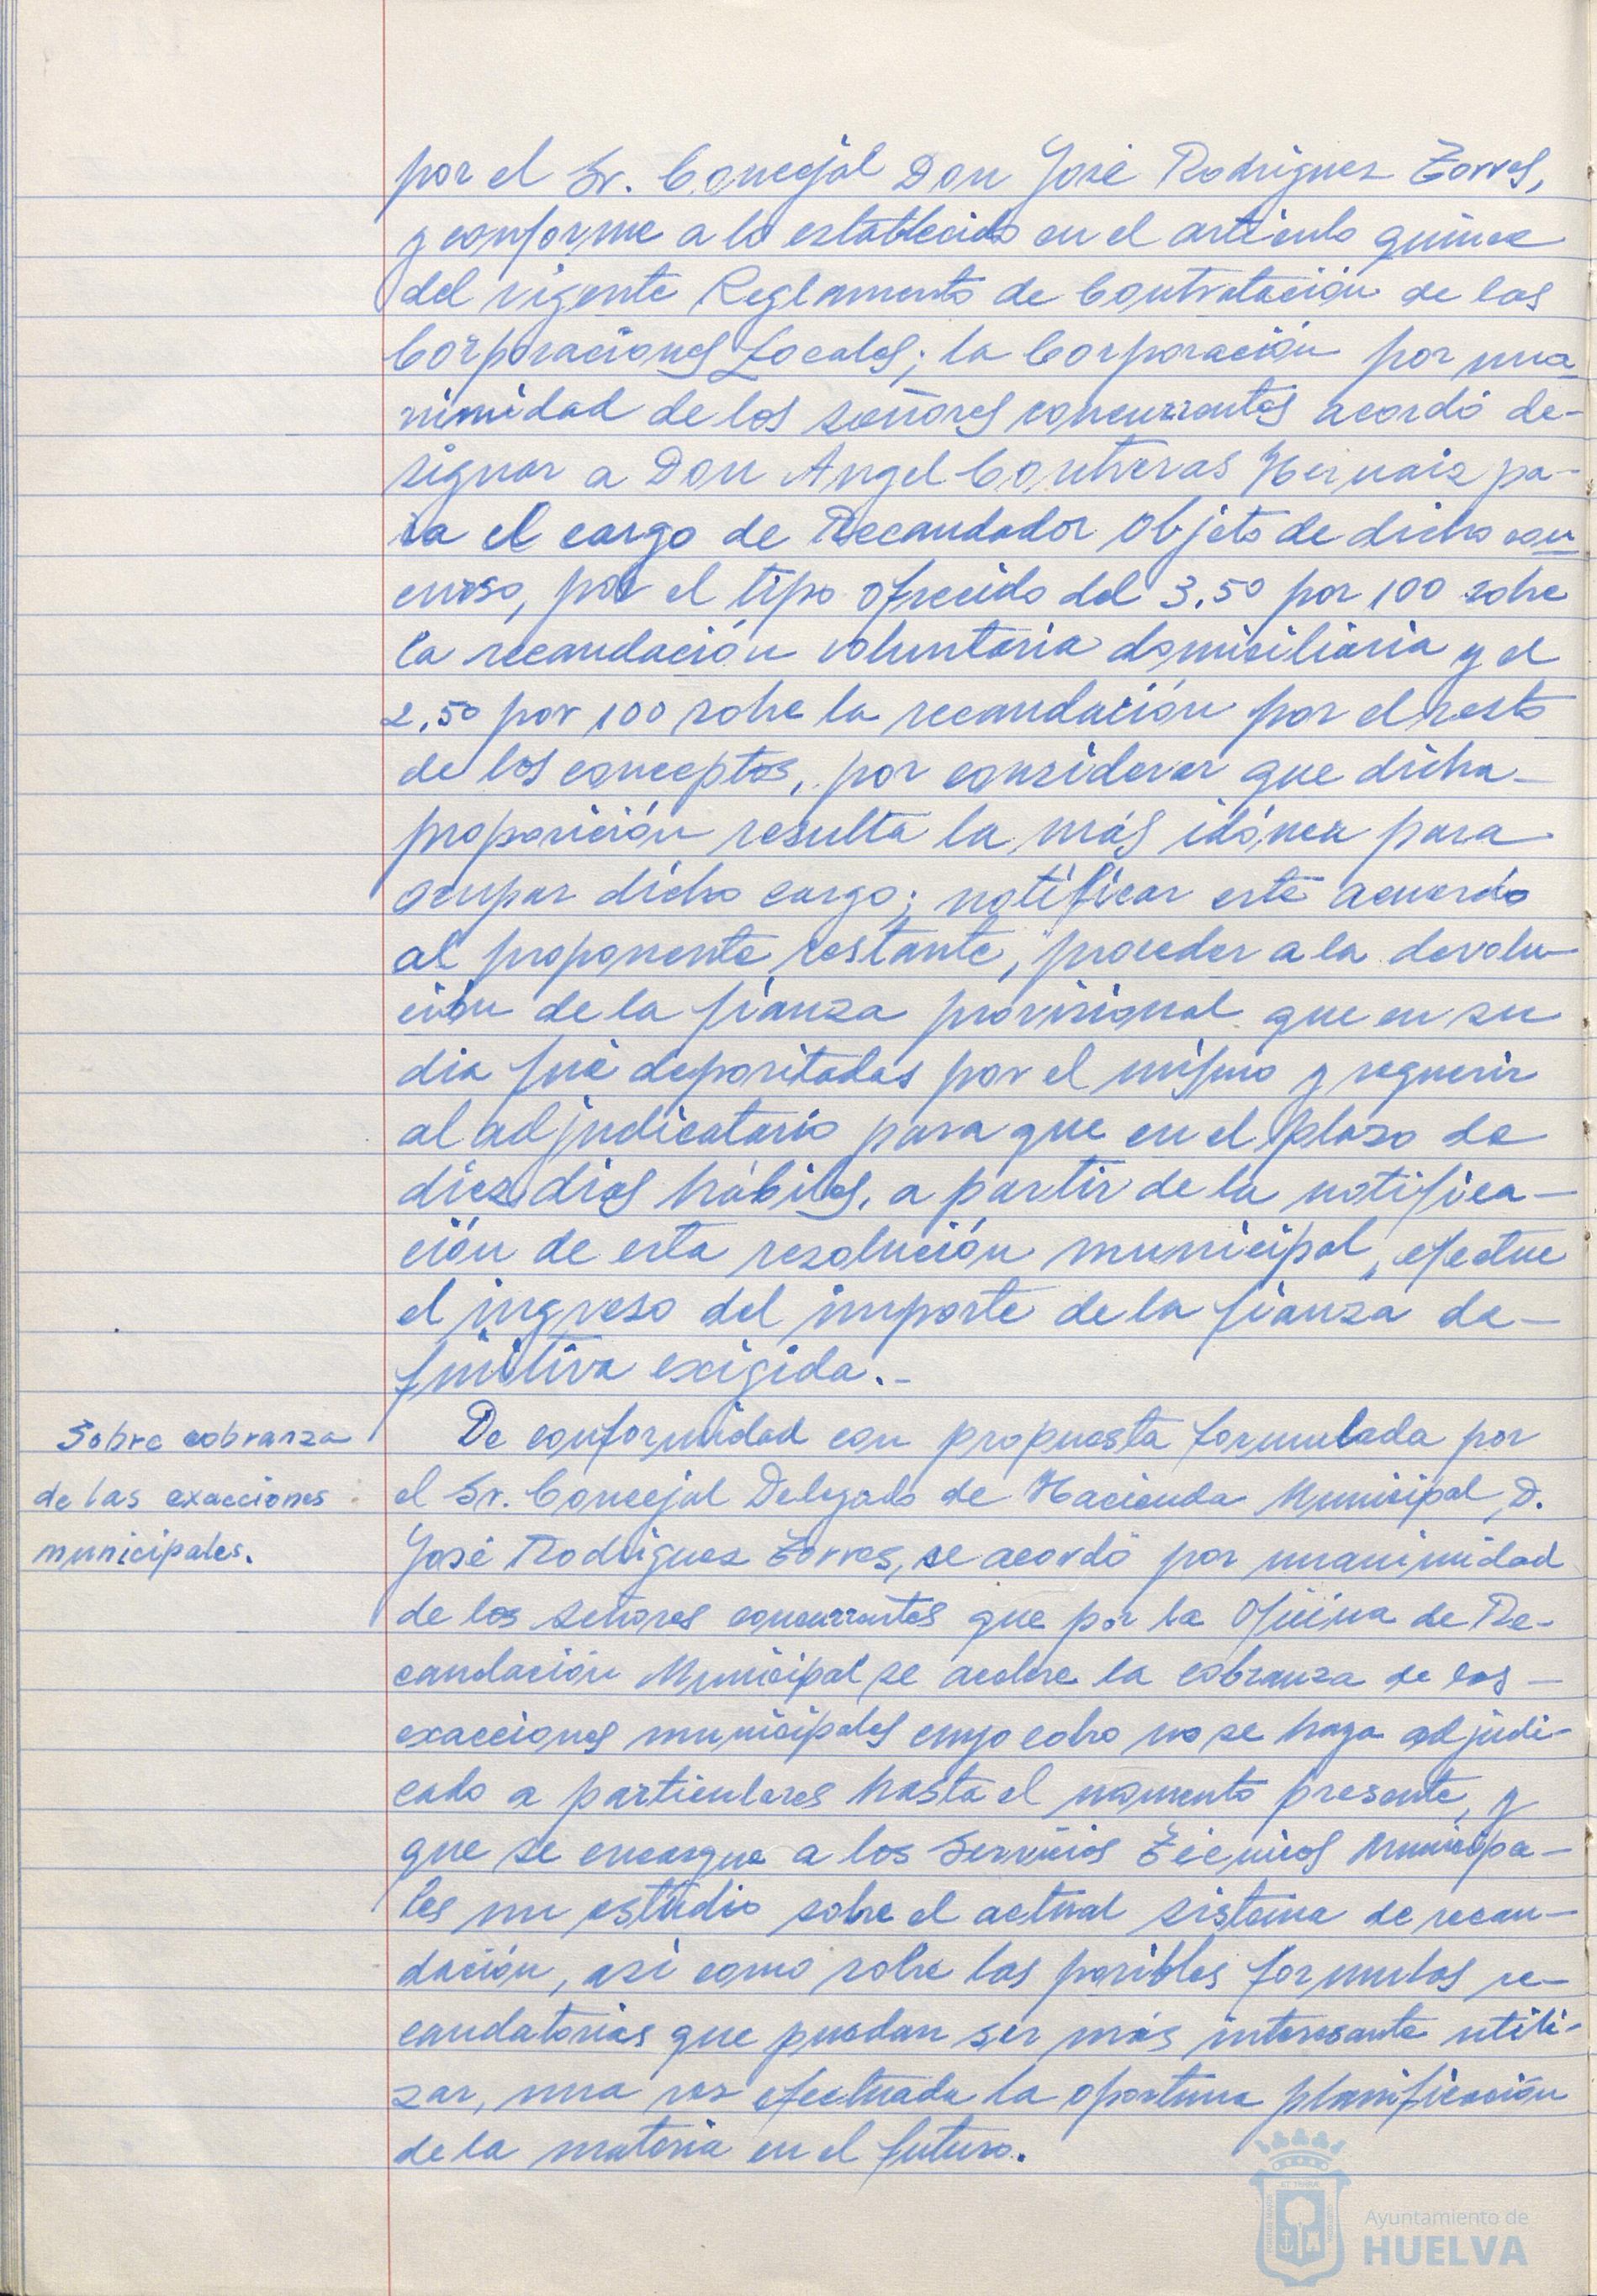 por el Sr. Concejal Don José Rodriguez Torres,
y conforme a lo establecido en el articulo quince
del vigente Reglamento de Contratación de las
Corporaciones Locales; la Corporación por una-
nimidad de los señores concurrentes acordó de-
signar a Don Angel Contreras Hernaiz pa-
ra el cargo de Recaudador objeto de dicho con-
curso, por el tipo ofrecido del 3,50 por 100 sobre
la recaudación voluntaria domiciliaria y el
2,50 por 100 sobre la recaudación por el resto
de los conceptos, por considerar que dicha
proposición resulta la más idónea para
ocupar dicho cargo; notificar este acuerdo
al proponente restante, proceder a la devolu-
ción de la fianza provisional que en su
dia fué depositadas por el mismo y requerir
al adjudicatario para que en el plazo de
diez dias hábiles, a partir de la notifica-
ción de esta resolución municipal, efectue
el ingreso del importe de la fianza de-
finitiva exigida.-
Sobre cobranza
de las exacciones
municipales.
De conformidad con propuesta formulada por
el Sr. Concejal Delegado de Hacienda Municipal, D.
José Rodriguez Torres, se acordó por unanimidad
de los señores concurrentes que por la Oficina de Re-
caudación Municipal se acelere la cobranza de las
exacciones municipales cuyo cobro no se haya adjudi-
cado a particulares hasta el momento presente, y
que se encargue a los Servicios Técnicos Municipa-
les un estudio sobre el actual sistema de recau-
dación, asi como sobre las posibles formulas re-
caudatorias que puedan ser más interesante utili-
zar, una vez efectuada la oportuna planificación
de la materia en el futuro.
Ayuntamiento de
HUELVA